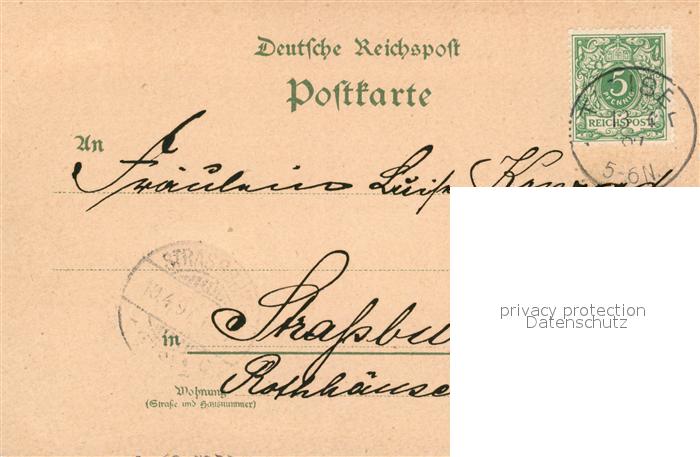 Deutsche Reichspost
Postkarte
5
PFENNIG
REICHSPOST
13 4
97
5-6N.
An
Fräulein Luise
STRASS
13.4.97
in Straßbu
Wohnung
(Straße und Hausnummer)
Rothhäuse
privacy protection
Datenschutz